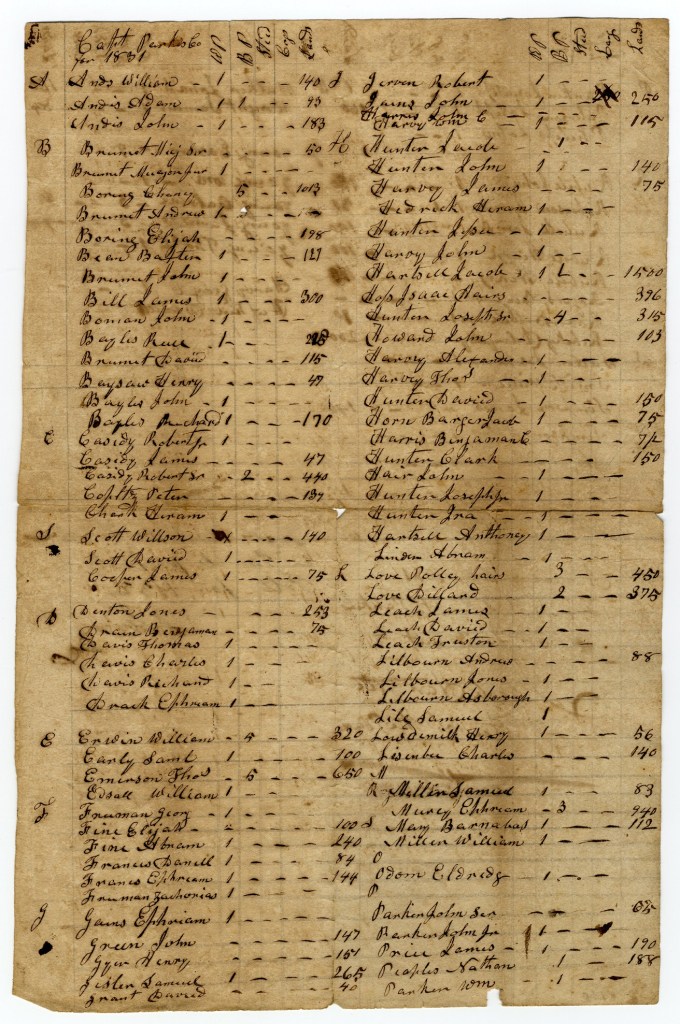 Capt Parks Co
for 1831
W P B P Stud Car Lands
A Ands William - 1 - - - 140
Andis Adam 1 1 - - 93
Andis John - 1 - - - 183
B Brumet Sr - - - - 50
Brumet Jur 1 - - -
Boring Chany 5 - - 1013
Brumet Andrew 1 - - -
Boring Elijah - - - - 198
Bean Baxter 1 - - - 127
Brumet John 1 - - -
Bill James 1 - - - 300
Boman John 1 - - -
Bayles 1 - - -
Brumet David - - - - 115
Baysaw Henry - - - - 47
Bayls John 1 - - -
Bayles Richard 1 - - - 170
C Casidy Robert Jr 1 - - -
Casidy James - - - - 47
Casidy Robert Sr - 2 - - 440
Peter - - - - 187
Hiram 1 - - -
S Scott Willson - x - - - 140
Scott David 1 - - - -
Cooper James 1 - - - - 75
D Denton Jones - - - - 253
Drain Benjamin - - - - 75
Davis Thomas 1 - - -
Davis Charles 1 - - -
Davis Richard 1 - - -
Drack Ephream 1 - - -
E Erwin William - 5 - - 320
Early Saml 1 - - - 100
Emerson Thos - 5 - - 650
Edsall William 1 - - -
F Freeman Georg - 1 - -
Fine Elijah - 2 - - 100
Fine Abram 1 - - - 240
Francis Daniell 1 - - - 84
Francis Ephream 1 - - - 144
Freeman Zachorias 1 - -
G Gains Ephriam 1 - - -
Green John - - - - 147
Gyer Henry - - - - 151
Samuel 1 - - - 265
Grant David - - - 40
W P B P Stud Car Lands
J Jerven Robert 1 - - -
Jains John 1 - - 250
Harris John
Harvy Wm C 1 - - - 115
H Hunter Jacob - 1 - -
Hunter John 1 - - - 140
Harvey James - - - - 75
Hedrick Hiram 1 - - -
Hunter Jesse 1 -
Harvy John 1 -
Hartsell Jacob 1 1 - - 1500
Isaac Hairs - - - - 396
Hunter Joseph Sr - 4 - - 315
Howard John - - - - 103
Harvey Alexander - 1 - - -
Harvey Thos 1 - - -
Hunter David 1 - - - 150
Horn Barger Jacob 1 - - - 75
Harris Binjaman C - - - 72
Hunter Clark - - - 150
Hair John 1 - - -
Hunter Joseph Jr 1 - - -
Hunter Ira 1 - - -
Hartsell Anthoney 1 - - -
Linden Abram 1 - - -
L Love Polley hairs 3 - - 450
Love Dillard 2 - - 375
Leach James 1 -
Leach David 1 -
Leach Fruston 1 -
Lilbourn Andrew - - - - 88
Lilbourn Jones 1 -
Lilbourn Asborough 1 - -
Lile Samuel 1
Henry 1 - - - 56
Lisenber Charles - - - 140
M
R Miller Samuel 1 - - 83
Murey Ephream - 3 - - 940
May Barnabas 1 - - - 112
Miller William 1 - - -
O
Odom Eldredg 1 - -
P
Parker John Ser - - - - 65
Parker John Jr 1 - -
Price James 1 - - - 190
Peoples Nathan 1 - - 188
Parker Wm 1 - -